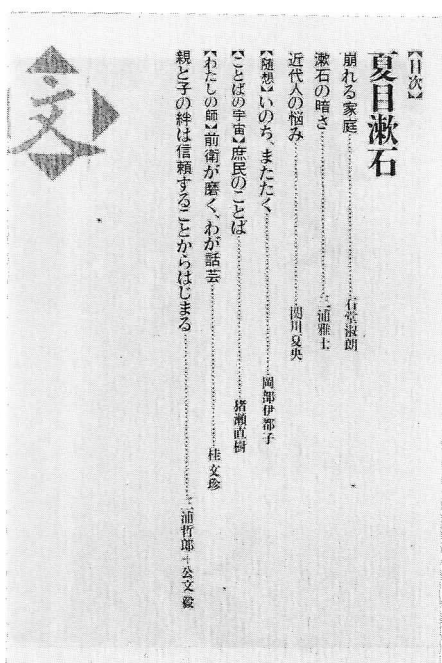 【目次】
夏目漱石
崩れる家庭……石堂淑朗
漱石の暗さ……三浦雅士
近代人の悩み……関川夏央
【随想】いのち、またたく……岡部伊都子
【ことばの宇宙】庶民のことば……猪瀬直樹
【わたしの師】前衛が磨く、わが話芸……桂文珍
親と子の絆は信頼することからはじまる……三浦哲郎+公文毅
文